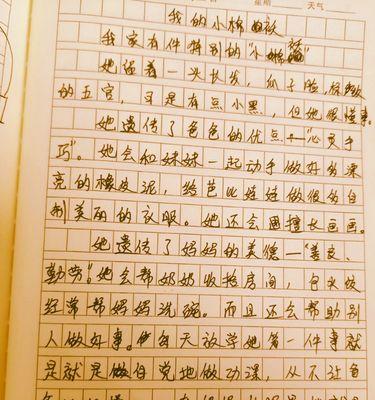 星期 天气
我的小棉袄
我家有件特别的“小棉袄”
她留着一头长发,瓜子脸,
的五官,可是有点小黑,但她很懂事。
她遗传了爸爸的优点一“心灵手
巧”。她会和妹妹一起动手做好多漂
亮的橡皮泥,给芭比娃娃做很多自
制美丽的衣服。她还会擅长画画。
她遗传了妈妈的美德一“善良、
勤劳”。她会帮奶奶收拾房间,
经常帮妈妈洗碗。而且还会帮助别
人做好事。每天放学她第一件事就
是就是做自觉地做功课,从不让爸